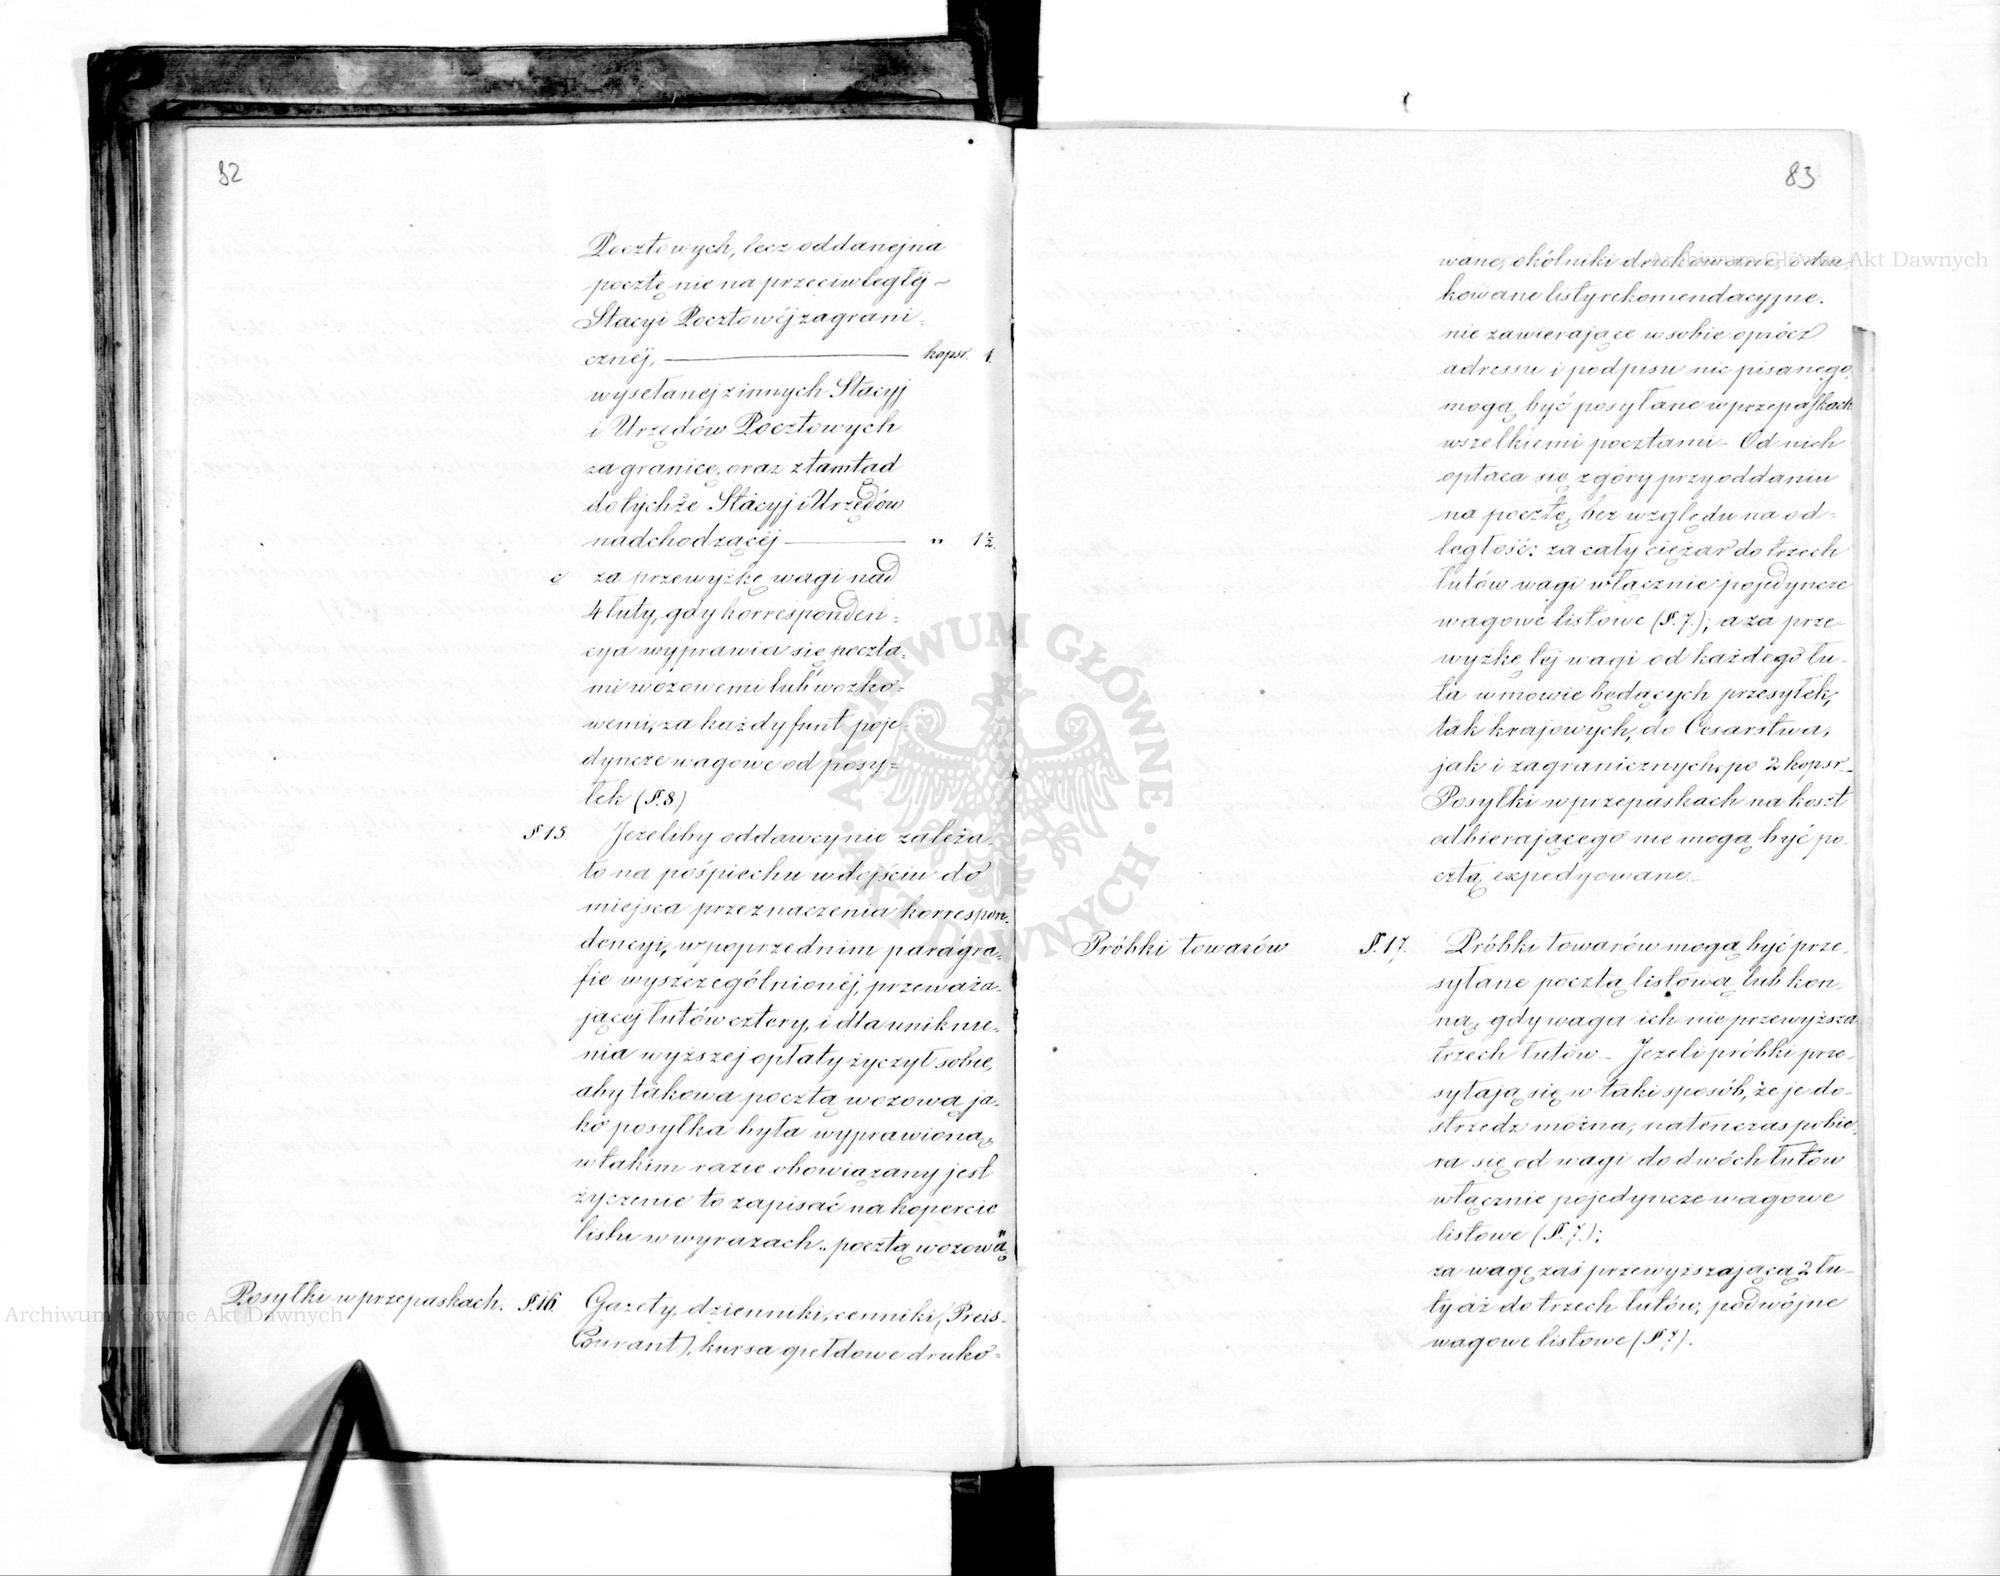 82
Pocztowych, lecz oddanej na
pocztę nie na przeciwległéj
Stacyi Pocztowéj zagrani-
cznéj, kopsr. 1.
wysełanej z innych Stacyj
i Urzędów Pocztowych
za granicę, oraz z tamtąd
do tychże Stacyj i Urzędów
nadchodzącéj " 1½.
c za przewyżkę wagi nad
4 łuty, gdy korresponden-
cya wyprawia się poczta-
mi wozowemi lub wózko-
wemi, za każdy funt poje-
dyncze wagowe od posy-
łek (§. 8.)
§ 15. Jeżeliby oddawcy nie zależa-
ło na pośpiechu w dojściu do
miejsca przeznaczenia korrespon-
dencyi, w poprzednim paragra-
fie wyszczególnionéj, przeważa-
jącej łutów cztery, i dla uniknie-
nia wyższej opłaty życzył sobie,
aby takowa pocztą wozową ja-
ko posyłka była wyprawioną,
w takim razie obowiązany jest
życzenie to zapisać na kopercie
listu w wyrazach „pocztą wozową"
Posyłki w przepaskach. §. 16. Gazety, dzienniki, cenniki, (Preis-
Courant), kursa giełdowe druko-
83
wane, okólniki drukowane i dru-
kowane listy rekomendacyjne,
nie zawierające w sobie oprócz
adressu i podpisu nic pisanego,
mogą być posyłane w przepaskach
wszelkiemi pocztami. Od nich
opłaca się z góry przy oddaniu
na pocztę, bez względu na od-
ległość: za cały ciężar do trzech
łutów wagi włącznie pojedyncze
wagowe listowe (§. 7.); a za prze-
wyżkę téj wagi od każdego łu-
ta w mowie będących przesyłek,
tak krajowych, do Cesarstwa,
jak i zagranicznych, po 2 kopsr.
Posyłki w przepaskach na koszt
odbierającego nie mogą być po-
cztą expedyowane.
Próbki towarów §. 17. Próbki towarów mogą być prze-
syłane pocztą listową lub kon-
ną, gdy waga ich nie przewyższa
trzech łutów. Jeżeli próbki prze-
syłają się w taki sposób, że je do-
strzedz można, natenczas pobie-
ra się od wagi do dwóch łutów
włącznie pojedyncze wagowe
listowe (§. 7.);
za wagę zaś przewyższającą 2 łu-
ty aż do trzech łutów, podwójne
wagowe listowe (§ 7).
Archiwum Główne Akt Dawnych
Archiwum Główne Akt Dawnych
ARCHIWUM GŁÓWNE · AKT DAWNYCH ·